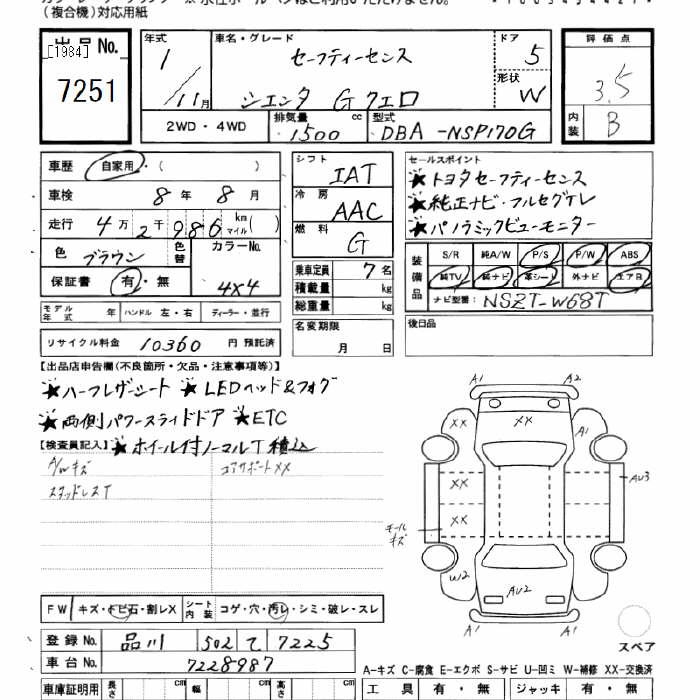 (複合機)対応用紙
出品No.
[1984]
7251
年式 車名・グレード ドア
1/11月 セーフティーセンス 5
シエンタ G クエロ 形状 W
2WD・4WD 排気量 1500 cc 型式 DBA-NSP170G
評価点
3.5
内装 B
車歴 自家用・( )
車検 8年 8月
走行 4万2千986 km マイル( )
色 ブラウン 色替 カラーNo. 4X4
保証書 有・無
モデル年式 年 ハンドル 左・右 ディーラー・並行
リサイクル料金 10360 円 預託済
シフト IAT
冷房 AAC
燃料 G
乗車定員 7名
積載量 kg
総重量 kg
名変期限
月 日
セールスポイント
★トヨタセーフティーセンス
★純正ナビ・フルセグTV
★パノラミックビューモニター
装備品 S/R 純A/W P/S P/W ABS
純TV 純ナビ 革シート 外ナビ エアB
ナビ型番: NSZT-W68T
後日品
【出品店申告欄(不良箇所・欠品・注意事項等)】
★ハーフレザーシート ★LEDヘッド&フォグ
★両側パワースライドドア ★ETC
【検査員記入】 ★ホイール付ノーマルT積込
A/Wキズ コアサポートXX
スタッドレスT
FW キズ・トビ石・割レX シート内装 コゲ・穴・汚レ・シミ・破レ・スレ
登録No. 品川 502 て 7225
車台No. 7228987
車庫証明用 長さ cm 幅 cm 高さ cm
A1 A2
XX XX A1
XX
XX
AU3
モールキズ
W2 AU2
A1 A1
スペア
A-キズ C-腐食 E-エクボ S-サビ U-凹ミ W-補修 XX-交換済
工具 有・無 ジャッキ 有・無